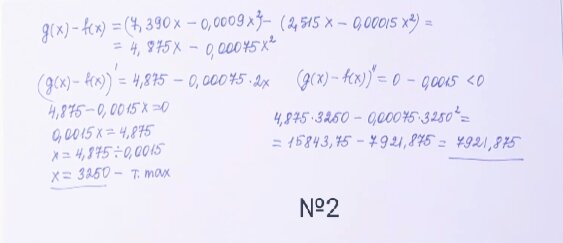 g(x) - f(x) = (7,390x - 0,0009x²) - (2,515x - 0,00015x²) =
= 4,875x - 0,00075x²
(g(x) - f(x))' = 4,875 - 0,00075·2x
(g(x) - f(x))'' = 0 - 0,0015 < 0
4,875 - 0,0015x = 0
0,0015x = 4,875
x = 4,875 ÷ 0,0015
x = 3250 - т. max
4,875·3250 - 0,00075·3250² =
= 15843,75 - 7921,875 = 7921,875
№2